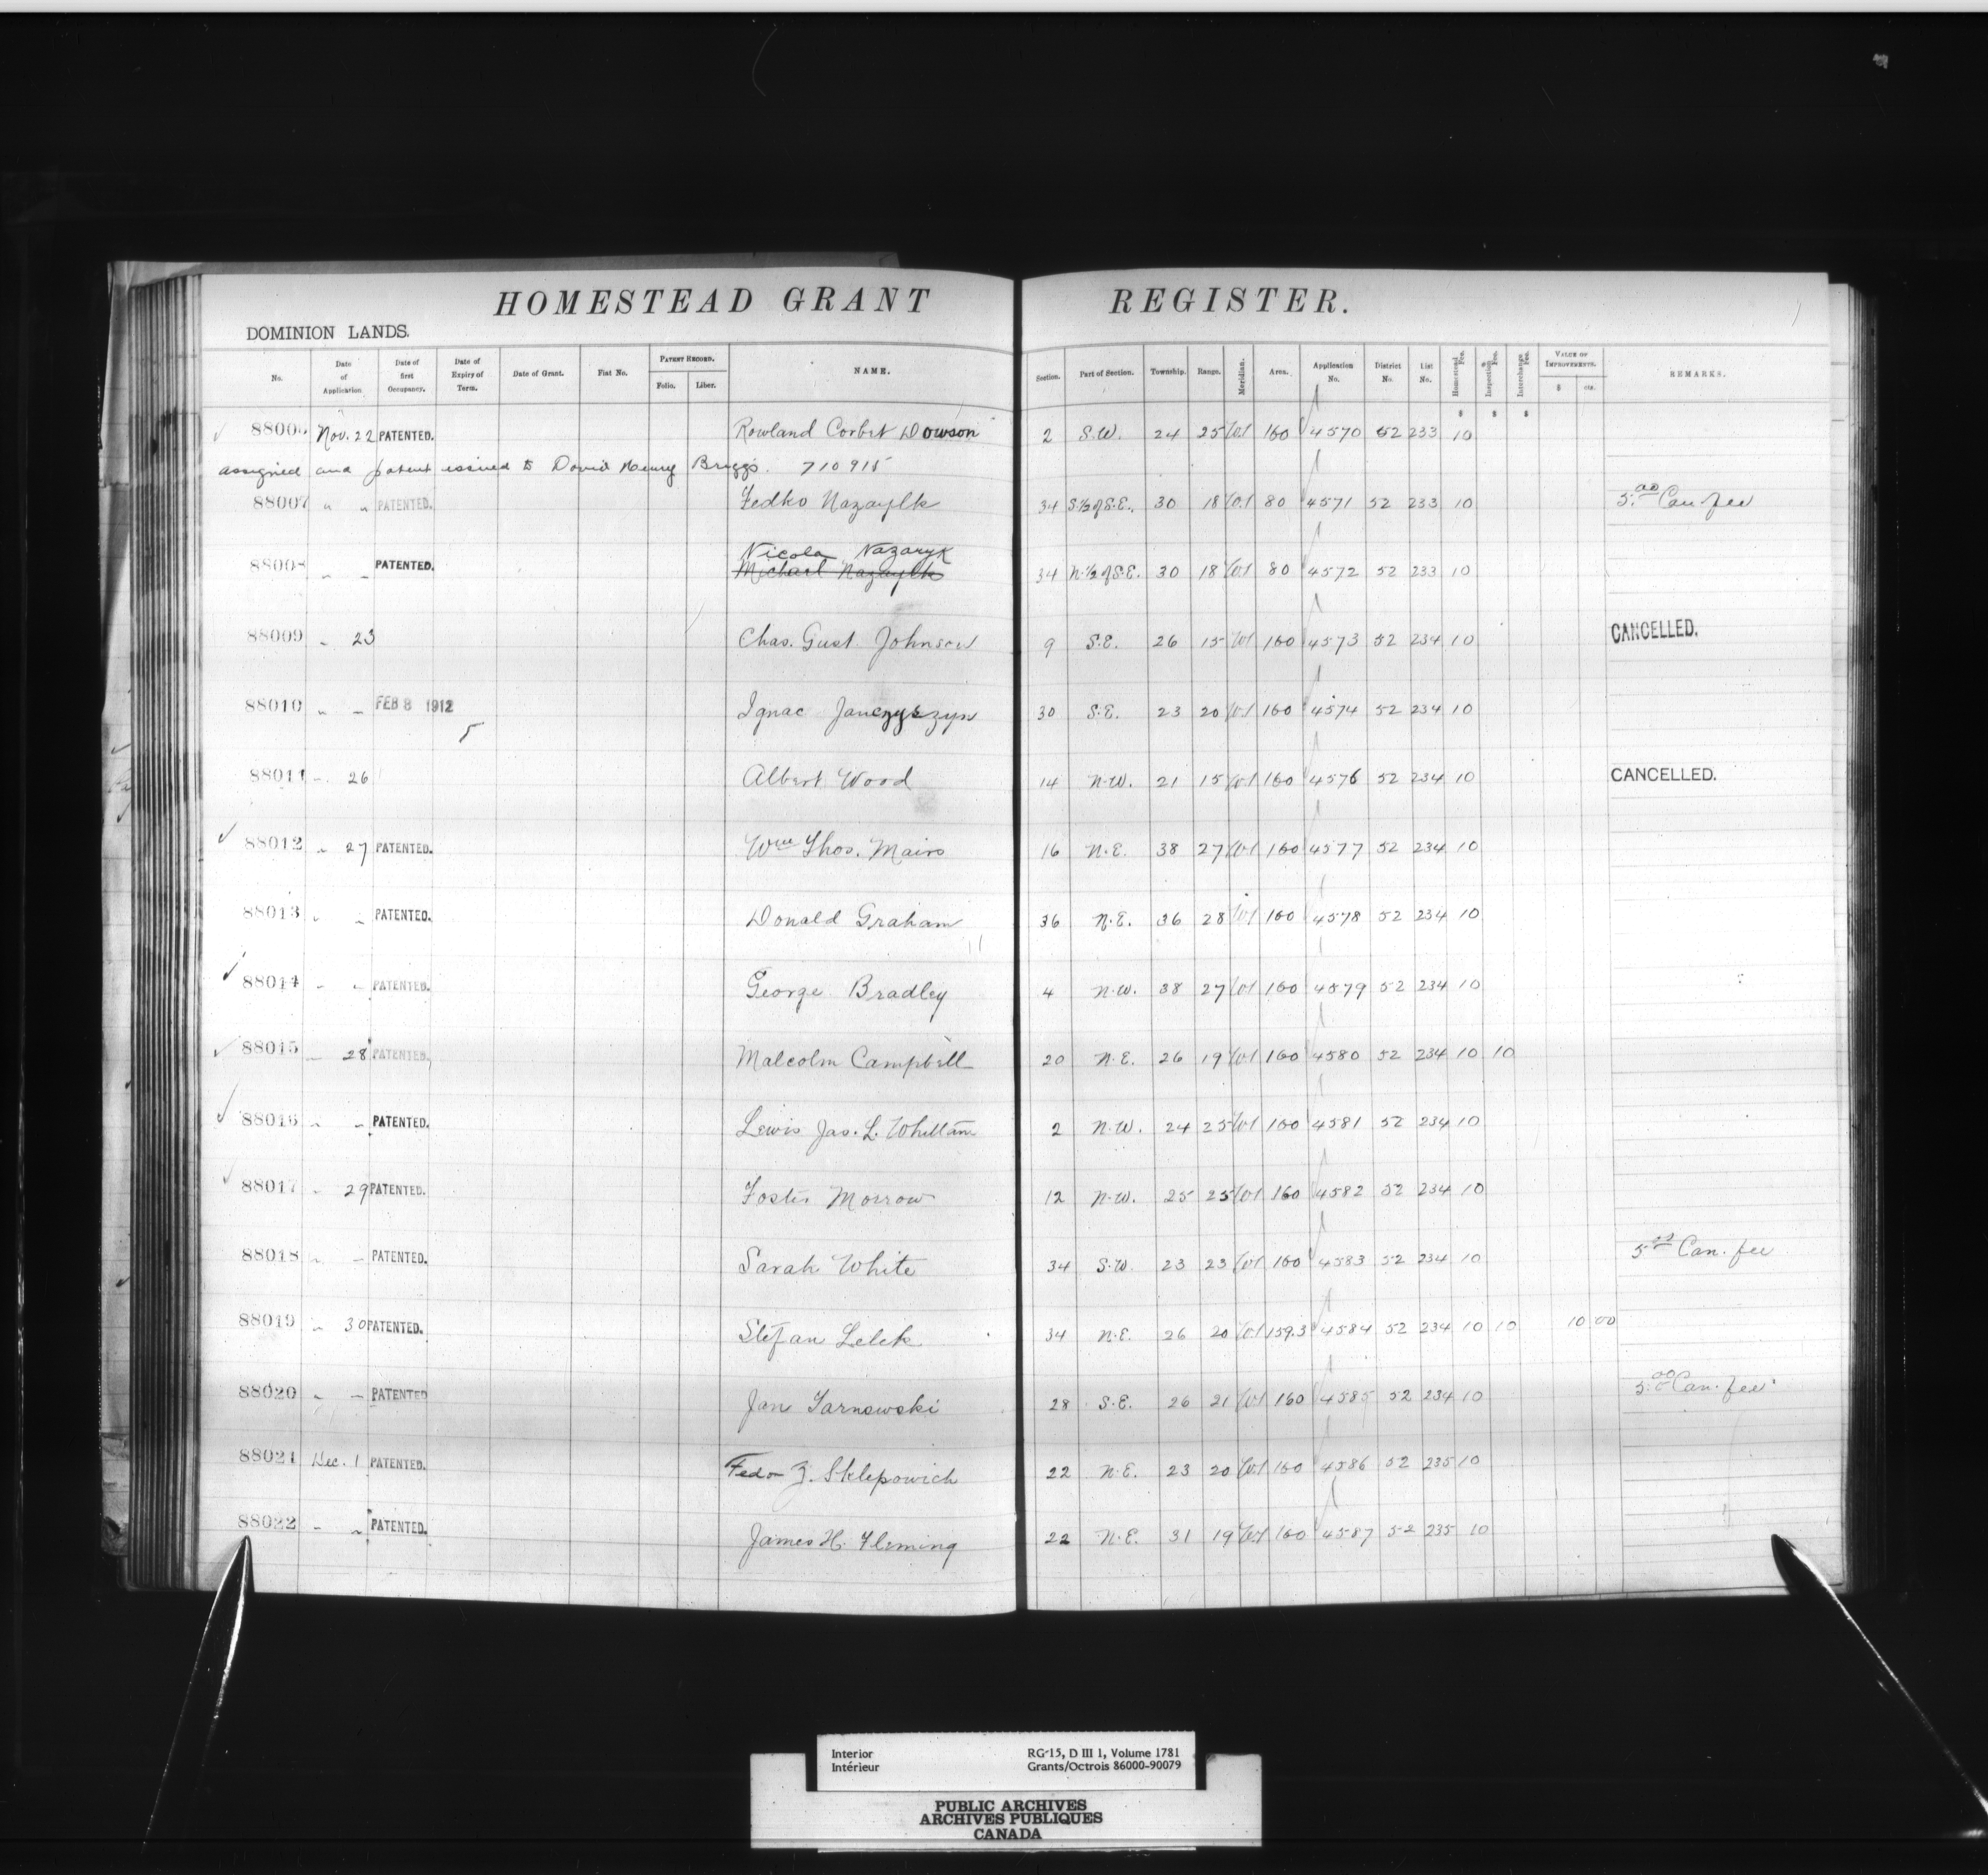 HOMESTEAD GRANT REGISTER.
DOMINION LANDS.
No. Date of Application Date of first Occupancy. Date of Expiry of Term. Date of Grant. Fiat No. PATENT RECORD. Folio. Liber. NAME. Section. Part of Section. Township. Range. Meridian. Area. Application No. District No. List No. Homestead Fee. Inspection Fee. Interchange Fee. VALUE OF IMPROVEMENTS. $ cts. REMARKS.
$ $ $
88006 Nov. 22 PATENTED. Rowland Corbet Dowson 2 S.W. 24 25 W1 160 4570 52 233 10
assigned and patent issued to David Henry Briggs. 710915
88007 " " PATENTED. Fedko Nazaylk 34 S.½ of S.E. 30 18 W1 80 4571 52 233 10 5.00 Can fee
Nicola Nazaryk
88008 " " PATENTED. Michael Nazaylk 34 N.½ of S.E. 30 18 W1 80 4572 52 233 10
88009 " 23 Chas. Gust. Johnson 9 S.E. 26 15 W1 160 4573 52 234 10 CANCELLED.
88010 " " FEB 8 1912 Ignac Janczyszyn 30 S.E. 23 20 W1 160 4574 52 234 10
5
88011 " 26 Albert Wood 14 N.W. 21 15 W1 160 4576 52 234 10 CANCELLED.
88012 " 27 PATENTED. Wm Thos. Mairs 16 N.E. 38 27 W1 160 4577 52 234 10
88013 " " PATENTED. Donald Graham 36 N.E. 36 28 W1 160 4578 52 234 10
88014 " " PATENTED. George Bradley 4 N.W. 38 27 W1 160 4579 52 234 10
88015 " 28 PATENTED. Malcolm Campbell 20 N.E. 26 19 W1 160 4580 52 234 10 10
88016 " " PATENTED. Lewis Jas. L. Whellam 2 N.W. 24 25 W1 160 4581 52 234 10
88017 " 29 PATENTED. Foster Morrow 12 N.W. 25 25 W1 160 4582 52 234 10
88018 " " PATENTED. Sarah White 34 S.W. 23 23 W1 160 4583 52 234 10 5.00 Can. fee
88019 " 30 PATENTED. Stefan Lelek 34 N.E. 26 20 W1 159.3 4584 52 234 10 10 10 00
88020 " " PATENTED Jan Tarnowski 28 S.E. 26 21 W1 160 4585 52 234 10 5.00 Can. fee
88021 Dec. 1 PATENTED. Fedor Z. Sklepowich 22 N.E. 23 20 W1 160 4586 52 235 10
88022 " " PATENTED. James H. Fleming 22 N.E. 31 19 W1 160 4587 52 235 10
Interior RG-15, D III 1, Volume 1781
Intérieur Grants/Octrois 86000-90079
PUBLIC ARCHIVES
ARCHIVES PUBLIQUES
CANADA